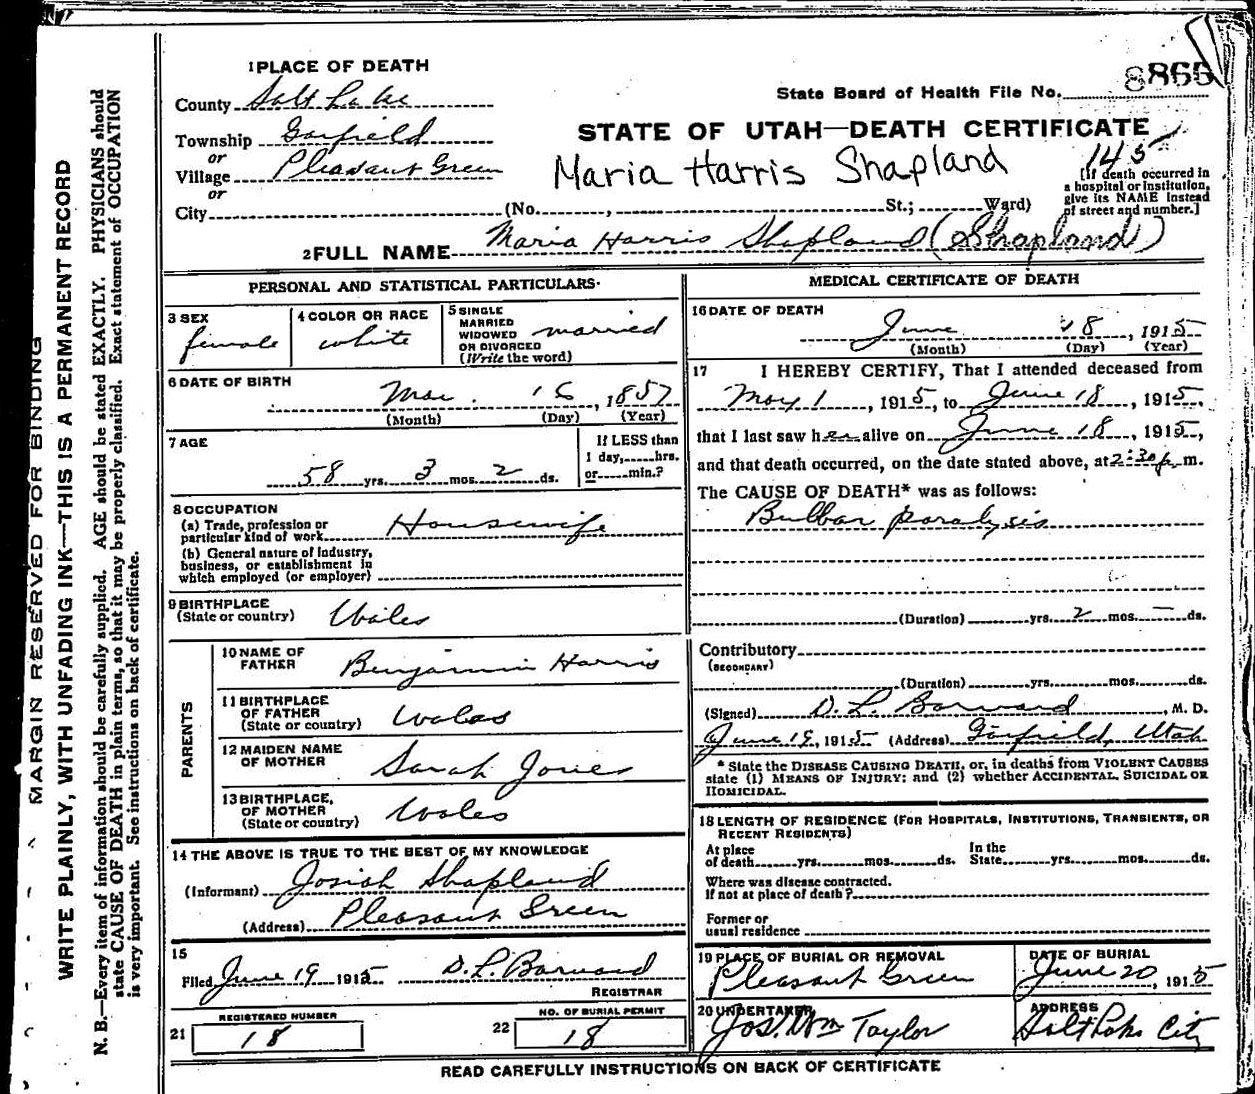 1 PLACE OF DEATH
County Salt Lake
State Board of Health File No. 8866
Township Garfield
or
Village Pleasant Green
or
City (No. , St.; Ward)
STATE OF UTAH—DEATH CERTIFICATE
145
Maria Harris Shapland
[If death occurred in a hospital or institution, give its NAME instead of street and number.]
2 FULL NAME Maria Harris Shapland (Shapland)
PERSONAL AND STATISTICAL PARTICULARS
3 SEX
female
4 COLOR OR RACE
white
5 SINGLE
MARRIED
WIDOWED
OR DIVORCED
(Write the word)
married
6 DATE OF BIRTH
Mar. 16, 1857
(Month) (Day) (Year)
7 AGE
58 yrs. 3 mos. 2 ds.
If LESS than
1 day, hrs.
or min.?
8 OCCUPATION
(a) Trade, profession or
particular kind of work Housewife
(b) General nature of industry,
business, or establishment in
which employed (or employer)
9 BIRTHPLACE
(State or country) Wales
PARENTS
10 NAME OF
FATHER Benjamin Harris
11 BIRTHPLACE
OF FATHER
(State or country) Wales
12 MAIDEN NAME
OF MOTHER Sarah Jones
13 BIRTHPLACE,
OF MOTHER
(State or country) Wales
14 THE ABOVE IS TRUE TO THE BEST OF MY KNOWLEDGE
(Informant) Josiah Shapland
(Address) Pleasant Green
15
Filed June 19 1915 D. L. Barnard
REGISTRAR
21 REGISTERED NUMBER
18
22 NO. OF BURIAL PERMIT
18
MEDICAL CERTIFICATE OF DEATH
16 DATE OF DEATH
June 18, 1915
(Month) (Day) (Year)
17 I HEREBY CERTIFY, That I attended deceased from
May 1, 1915, to June 18, 1915,
that I last saw her alive on June 18, 1915,
and that death occurred, on the date stated above, at 2:30 p. m.
The CAUSE OF DEATH* was as follows:
Bulbar paralysis
(Duration) yrs. 2 mos. — ds.
Contributory
(SECONDARY)
(Duration) yrs. mos. ds.
(Signed) D. L. Barnard, M. D.
June 19, 1915 (Address) Garfield, Utah
* State the DISEASE CAUSING DEATH, or, in deaths from VIOLENT CAUSES
state (1) MEANS OF INJURY; and (2) whether ACCIDENTAL, SUICIDAL OR
HOMICIDAL.
18 LENGTH OF RESIDENCE (FOR HOSPITALS, INSTITUTIONS, TRANSIENTS, OR
RECENT RESIDENTS)
At place
of death yrs. mos. ds.
In the
State yrs. mos. ds.
Where was disease contracted.
if not at place of death?
Former or
usual residence
19 PLACE OF BURIAL OR REMOVAL
Pleasant Green
DATE OF BURIAL
June 20, 1915
20 UNDERTAKER
Jos. Wm Taylor
ADDRESS
Salt Lake City
READ CAREFULLY INSTRUCTIONS ON BACK OF CERTIFICATE
MARGIN RESERVED FOR BINDING
WRITE PLAINLY, WITH UNFADING INK—THIS IS A PERMANENT RECORD
N. B.—Every item of information should be carefully supplied. AGE should be stated EXACTLY. PHYSICIANS should
state CAUSE OF DEATH in plain terms, so that it may be properly classified. Exact statement of OCCUPATION
is very important. See instructions on back of certificate.